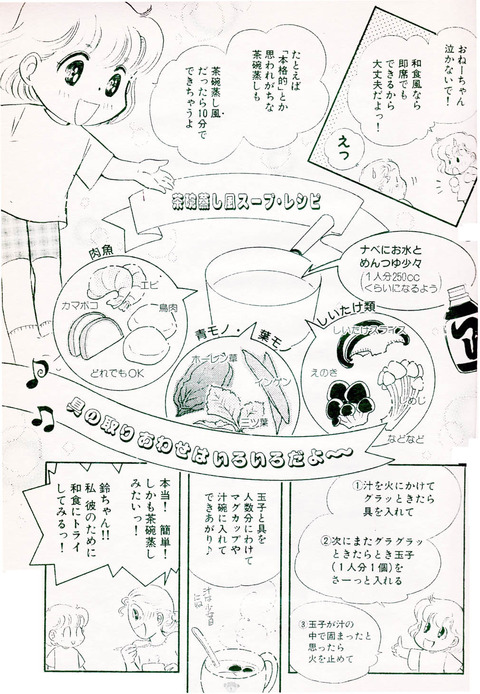 おねーちゃん
泣かないで!
和食風なら
即席でも
できるから
大丈夫だよっ!
えっ
たとえば
「本格的」とか
思われがちな
茶碗蒸しも
茶碗蒸し風
だったら10分で
できちゃうよ
茶碗蒸し風スープ・レシピ
ナベにお水と
めんつゆ少々
(1人分250cc
くらいになるよう)
肉魚
エビ
カマボコ
鳥肉
どれでもOK
青モノ・葉モノ
ホーレン草
インゲン
三ツ葉
しいたけ類
しいたけスライス
えのき
しめじ
などなど
具の取りあわせはいろいろだよ〜〜
①汁を火にかけて
グラッときたら
具を入れて
②次にまたグラグラッ
ときたらとき玉子
(1人分1個)を
さーっと入れる
③玉子が汁の
中で固まったと
思ったら
火を止めて
玉子と具を
人数分にわけて
マグカップや
汁碗に入れて
できあがり♪
本当!簡単!
しかも茶碗蒸し
みたいっ!
鈴ちゃん!!
私彼のために
和食にトライ
してみるっ!